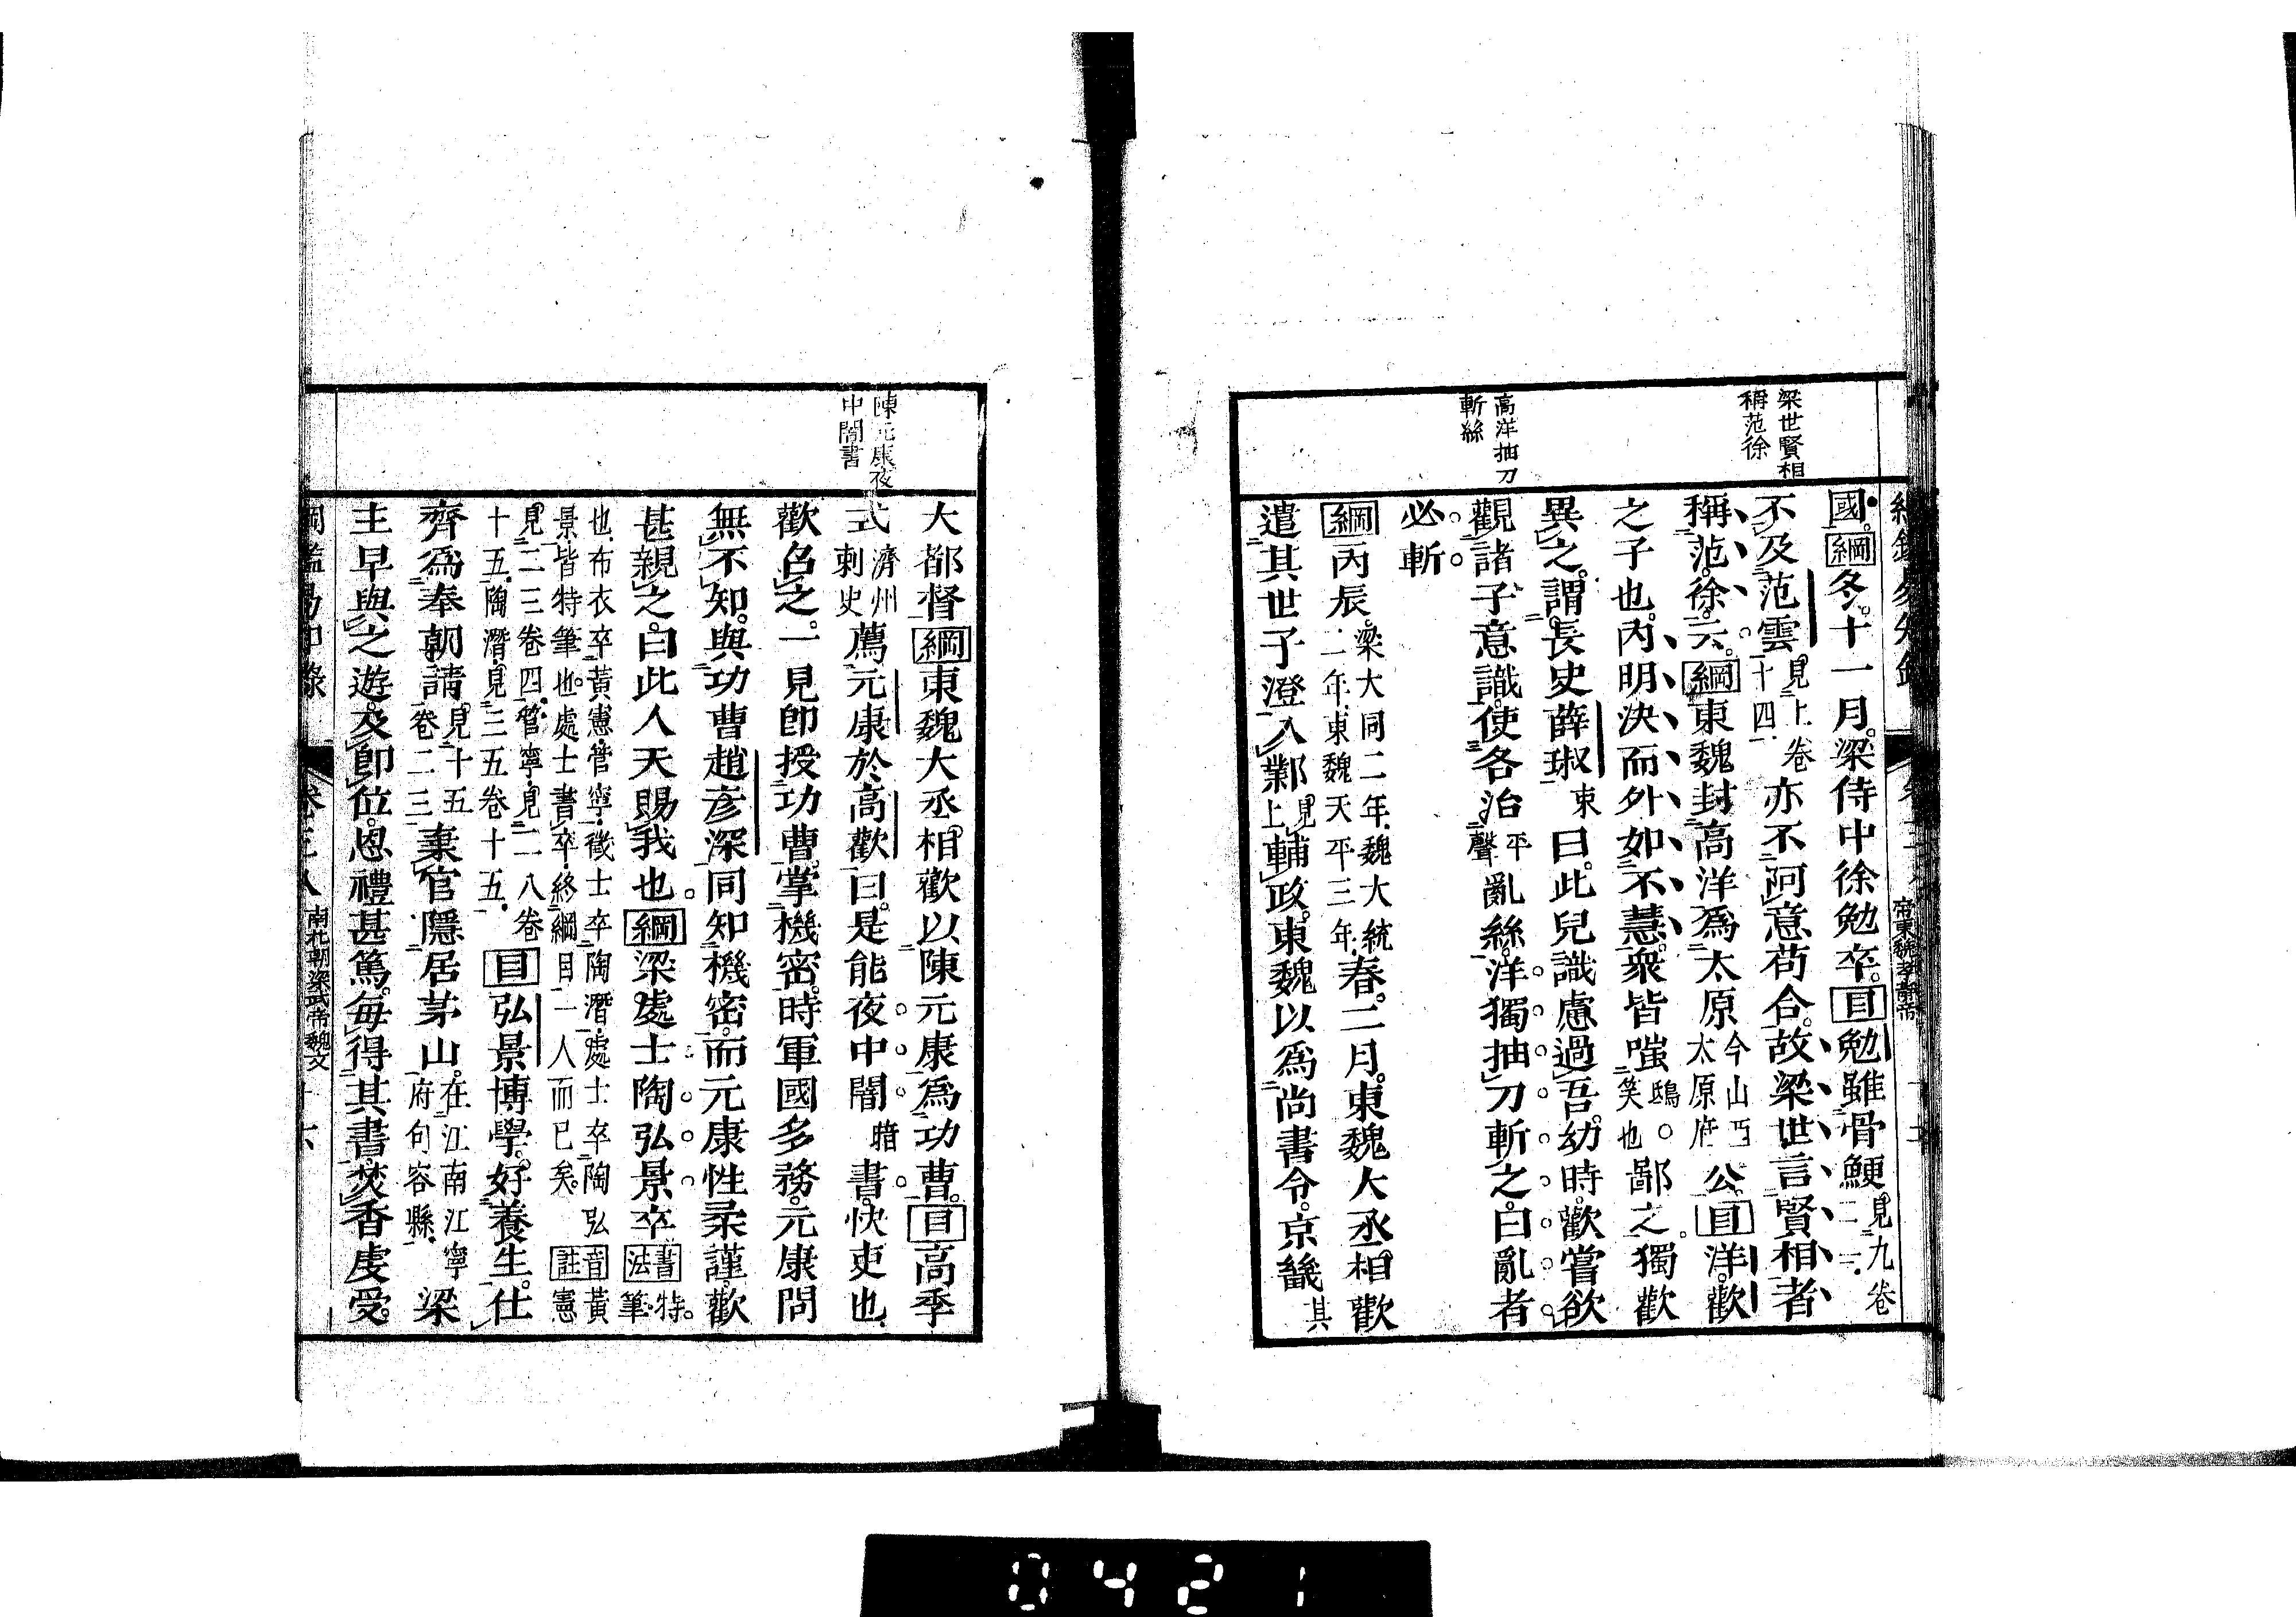 梁世賢相
稱范徐
高洋抽刀
斬絲
國。綱冬。十一月。梁侍中徐勉卒。目勉雖骨鯁見九卷二二。
不及范雲見上卷十四。亦不阿意苟合。故梁世言賢相者
稱范徐。云。綱東魏封高洋爲太原今山西太原府公。目洋歡
之子也。内明決而外如不慧。衆皆嗤鴟。笑也鄙之。獨歡
異之。謂長史薛琡東曰。此兒識慮過吾。幼時。歡嘗欲
觀諸子意識。使各治平聲亂絲。洋獨抽刀斬之。曰亂者
必斬
綱丙辰。梁大同二年。魏大統二年。東魏天平三年。春。二月。東魏大丞相歡
遣其世子澄入鄴見上輔政。東魏以爲尚書令。京畿其
帝東魏孝靜帝
陳元康夜
中闇書
大都督綱東魏大丞相歡以陳元康爲功曹。目高季
式濟州刺史薦元康於高歡曰。是能夜中闇暗書。快吏也。
歡召之。一見卽授功曹。掌機密。時軍國多務。元康問
無不知。與功曹趙彦深同知機密。而元康性柔謹。歡
甚親之。曰此人天賜我也。綱梁處士陶弘景卒書法特筆
音註黃憲
也。布衣卒。黃憲。管寧。徵士卒。陶潛。處士卒。陶弘
景皆特筆也。處士書卒。終綱目一人而已矣。
見二三卷四。管寧。見二八卷
十五。陶潛。見三五卷十五。目弘景博學。好養生。仕
齊爲奉朝請。見十五卷二三棄官隱居茅山。在江南江寧府句容縣。梁
主早與之遊。及卽位。恩禮甚篤。每得其書。焚香虔受。
南北朝梁武帝魏文
0421